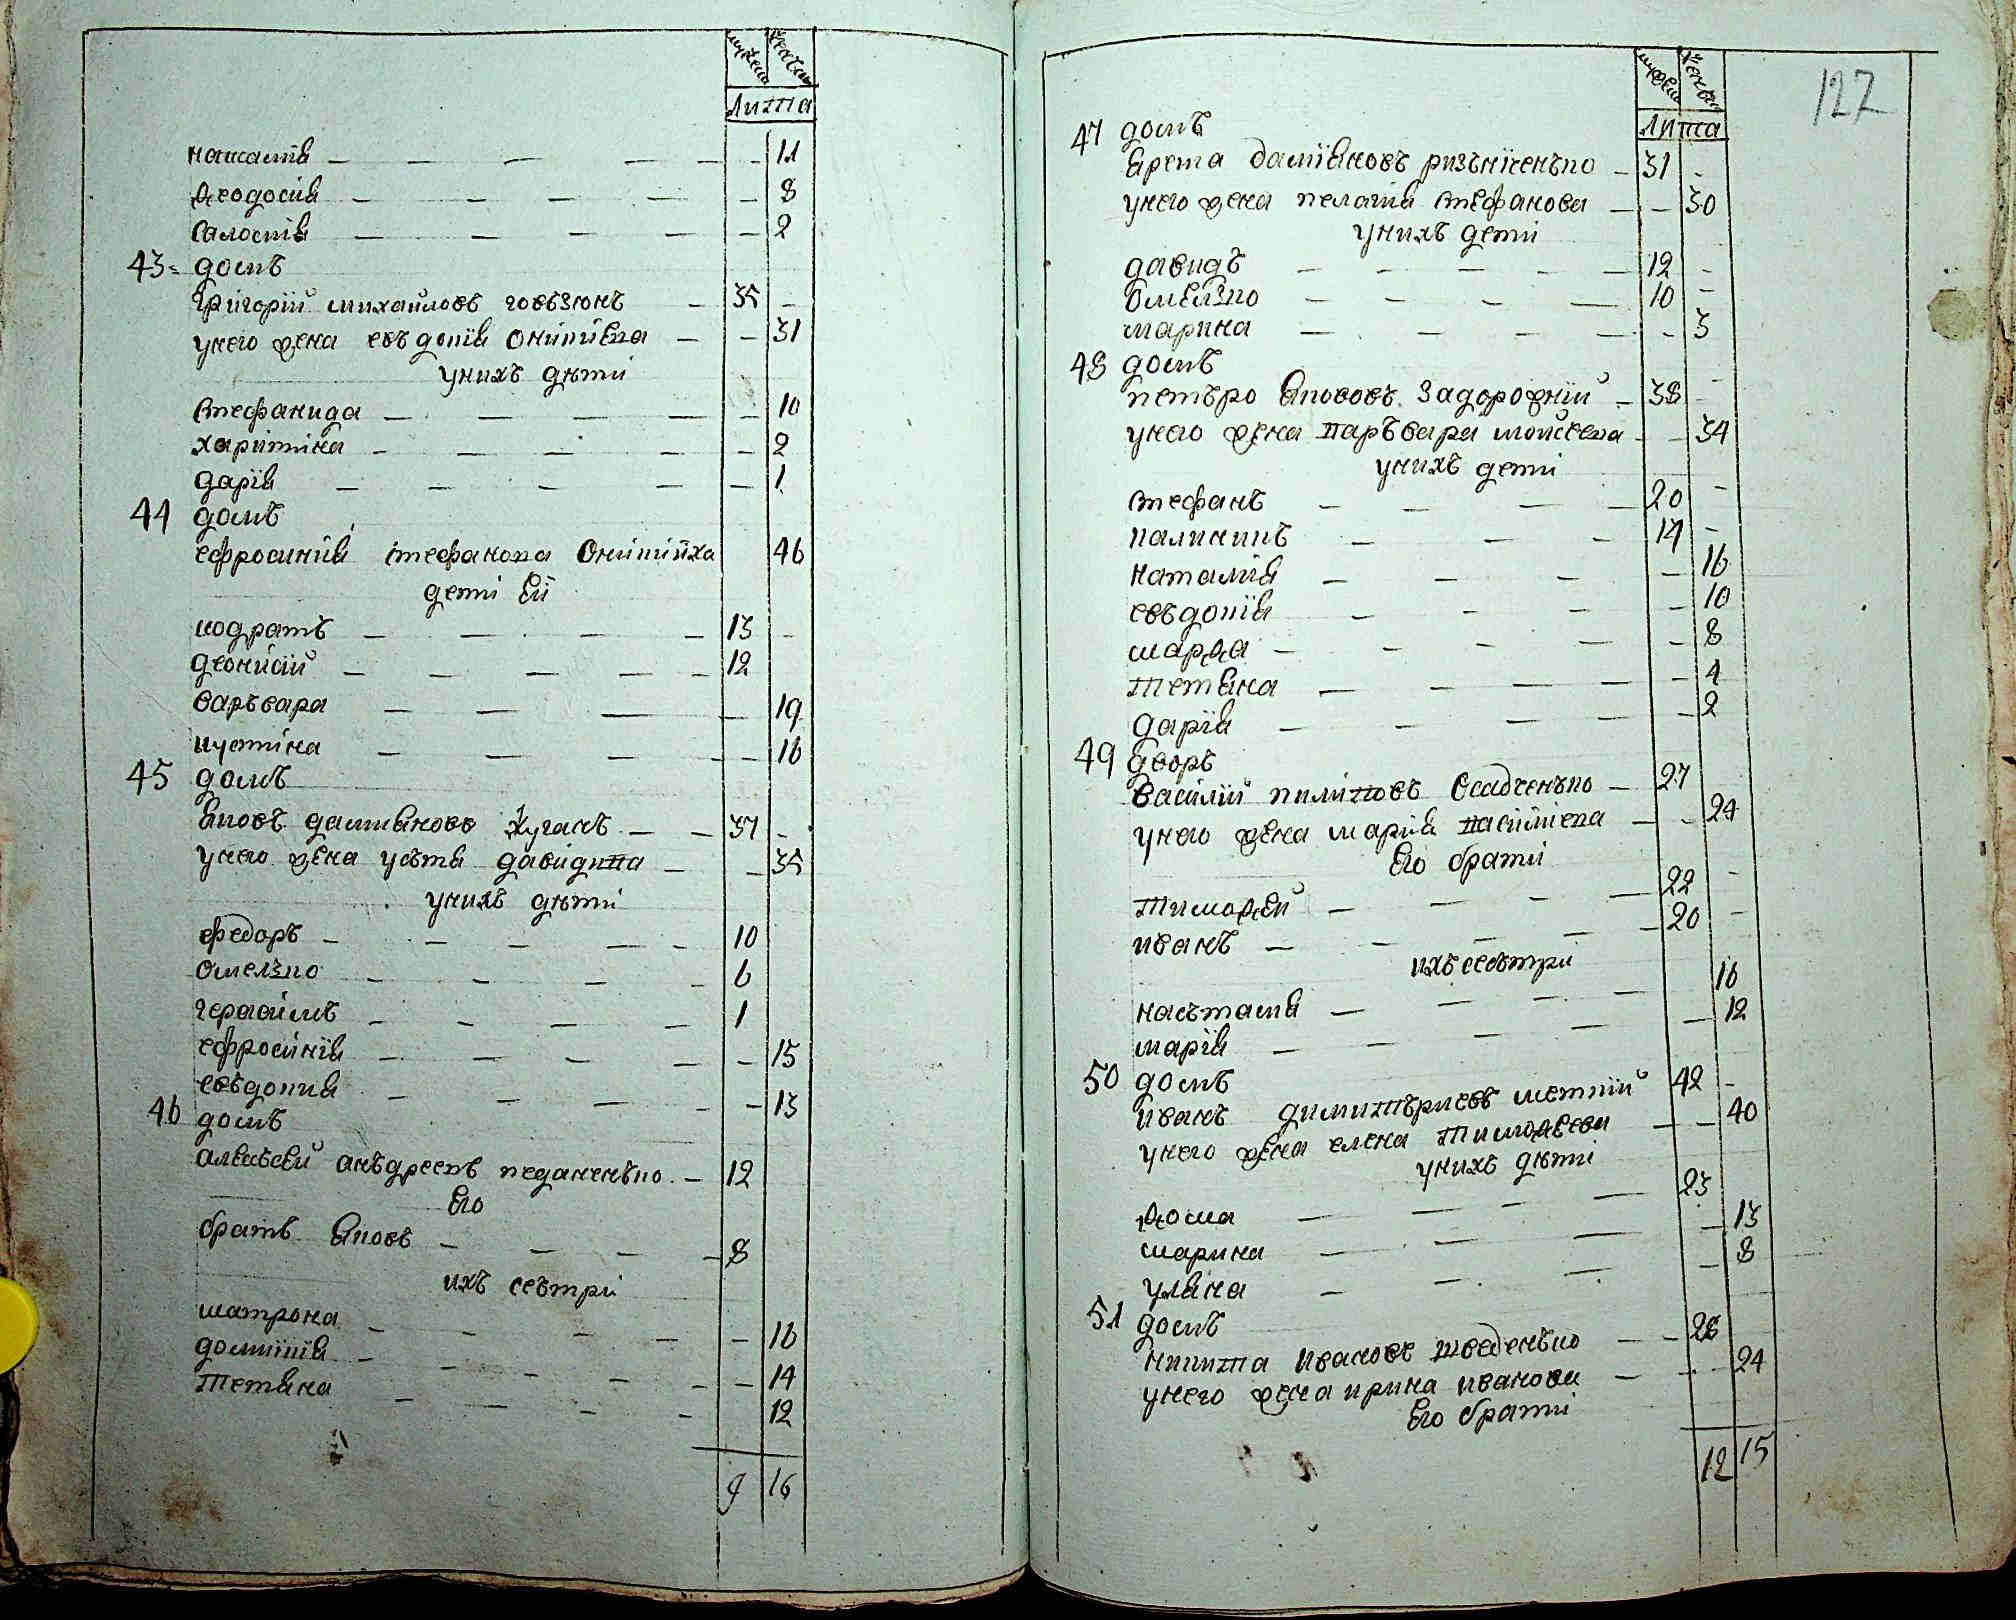 мужеска женска
Лита
наталия 11
Ѳеодосия 8
Саломія 2
43 домъ
григорий михайловъ 35
у него жена евъдокия 31
у нихъ дѣти
стефанида 10
харитина 2
дарія 1
44 домъ
ефросиния стефанова Оникиїха 46
дети Ей
кодратъ 13
деонисий 12
варъвара 19
иустина 16
45 домъ
Яковъ дамияновъ 37
у него жена усътя давидова 35
у нихъ дѣти
федоръ 10
Омелъко 6
герасимъ 1
ефросинїя 15
евъдокия 13
46 домъ
алексѣей анъдреевъ 12
Его
братъ Яковъ 8
ихъ сестри
матрона 16
домникия 14
тетяна 12
9 16
127
мужеска женска
Лита
47 домъ
Ярема даміяновъ 31
у него жена пелагия стефанова 30
у нихъ дети
давидъ 12
Омелъко 10
марина 3
48 домъ
петъро Якововъ Задорожний 38
у него жена варъвара мойсеева 34
у нихъ дети
стефанъ 20
калиникъ 14
наталия 16
евъдокїя 10
марѳа 8
тетяна 4
дарїя 2
49 дворъ
василий пилиповъ Осадченъко 27
у него жена мария 24
Его братия
тимоѳей 22
иванъ 20
ихъ сестъри
насътасия 16
марїя 12
50 домъ
иванъ димитъриевъ 42
у него жена елена тимоѳеева 40
у нихъ дѣти
Ѳома 23
марина 13
уляна 8
51 домъ
никита ивановъ шведенъко 28
у него жена ирина иванова 24
Его братия
12 15